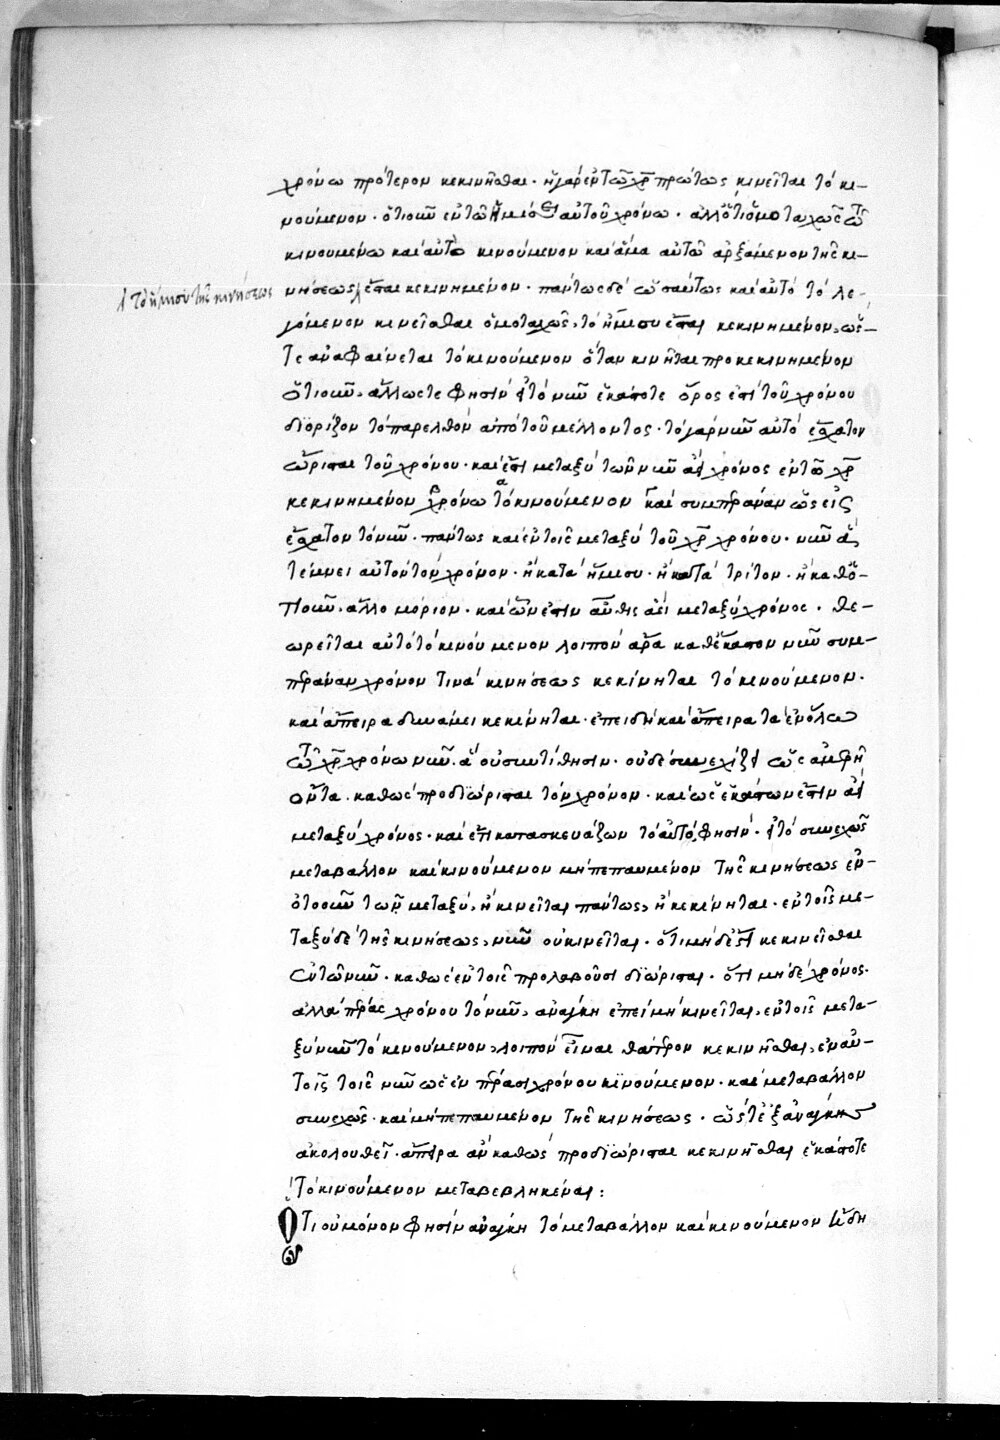 χρόνω πρότερον κεκινῆσθαι · ἢ γὰρ ἐν τῶ χρ πρώτως κινεῖται τὸ κι-
νούμενον · ὁτιοῦν ἐν τῶ ἡμίσει αὐτοῦ χρόνω · ἀλλότι ὁμοταχῶς τῶ
κινουμένω καὶ αὐτὸ κινούμενον καὶ ἅμα αὐτῶ ἀρξάμενον τῆς κι-
τὸ ἥμισυ τῆς κινήσεως
νήσεως ἔσται κεκινημένον · πάντως δὲ ὡσαύτως καὶ αὐτὸ τὸ λε-
γόμενον κινεῖσθαι ὁμοταχῶς, τὸ ἥμισυ ἔσται κεκινημένον, ὥς-
τε ἀναφαίνεται τὸ κινούμενον ὅταν κινῆται προκεκινημένον
ὁτιοῦν, ἄλλως τε φησὶν τὸ νῦν ἑκάστοτε ὅρος ἐστὶ τοῦ χρόνου
διορίζον τὸ παρελθὸν ἀπὸ τοῦ μέλλοντος · τὸ γὰρ νῦν αὐτὸ ἔσχατον
ὥρισται τοῦ χρόνου · καὶ ἔστι μεταξὺ τῶν νῦν ἀεὶ χρόνος ἐν τῶ χρ
κεκινημένον χρόνω τὸ κινούμενον καὶ συμπεράναν ὡς εἰς
ἔσχατον τὸ νῦν · πάντως καὶ ἐν τοῖς μεταξὺ τοῦ χρόνου · νῦν ἃ
τέμνει αὐτὸν τὸν χρόνον · ἢ κατὰ ἥμισυ · ἢ κατὰ τρίτον · ἢ καθὸ-
τιοῦν, ἄλλο μόριον · καὶ ὧν ἐστιν αὖθις ἀεὶ μεταξὺ χρόνος · θε-
ωρεῖται αὐτὸ τὸ κινούμενον λοιπὸν ἄρα καθ' ἕκαστον νῦν συμ-
περάναν χρόνον τινὰ κινήσεως κεκίνηται τὸ κινούμενον ·
καὶ ἄπειρα δυνάμει κεκίνηται · ἐπειδὴ καὶ ἄπειρα τὰ ἐν ὅλω
τῶ χρόνω νῦν · ἃ οὐ συντίθησιν · οὐδὲ συνεχίζει ὡς ἀμερῆ
ὄντα · καθὼς προδιώρισται τὸν χρόνον · καὶ ὡς ἑκάστων ἐστὶν ἀεὶ
μεταξὺ χρόνος · καὶ ἔτι κατασκευάζων τὸ αὐτὸ, φησὶν · τὸ συνεχῶς
μεταβάλλον καὶ κινούμενον μὴ πεπαυμένον τῆς κινήσεως ἐν-
ὁτοοῦν τῶν μεταξὺ, ἢ κινεῖται πάντως, ἢ κεκίνηται · ἐν τοῖς με-
ταξὺ δὲ τῆς κινήσεως, νῦν οὐ κινεῖται · ὅτι μηδὲ κεκινεῖσθαι
ἐν τῶ νῦν · καθὼς ἐν τοῖς προλαβοῦσι διώρισται · ὅτι μηδὲ χρόνος ·
ἀλλὰ πέρας χρόνου τὸ νῦν, ἀνάγκη ἐπεὶ μὴ κινεῖται, ἐν τοῖς μετα-
ξὺ νῦν τὸ κινούμενον, λοιπὸν εἶναι θάτερον κεκινῆσθαι, ἐν αὐ-
τοῖς τοῖς νῦν ὡς ἐν πέρασι χρόνου κινούμενον · καὶ μεταβάλλον
συνεχῶς · καὶ μὴ πεπαυμένον τῆς κινήσεως · ὥστε ἐξ ἀνάγκης
ἀκολουθεῖ · ἄπειρα ἂν καθὼς προδιώρισται κεκινῆσθαι ἑκάστοτε
τὸ κινούμενον μεταβεβληκέναι :
Ὅτι οὐ μόνον φησὶν ἀνάγκη τὸ μεταβάλλον καὶ κινούμενον ἤδη